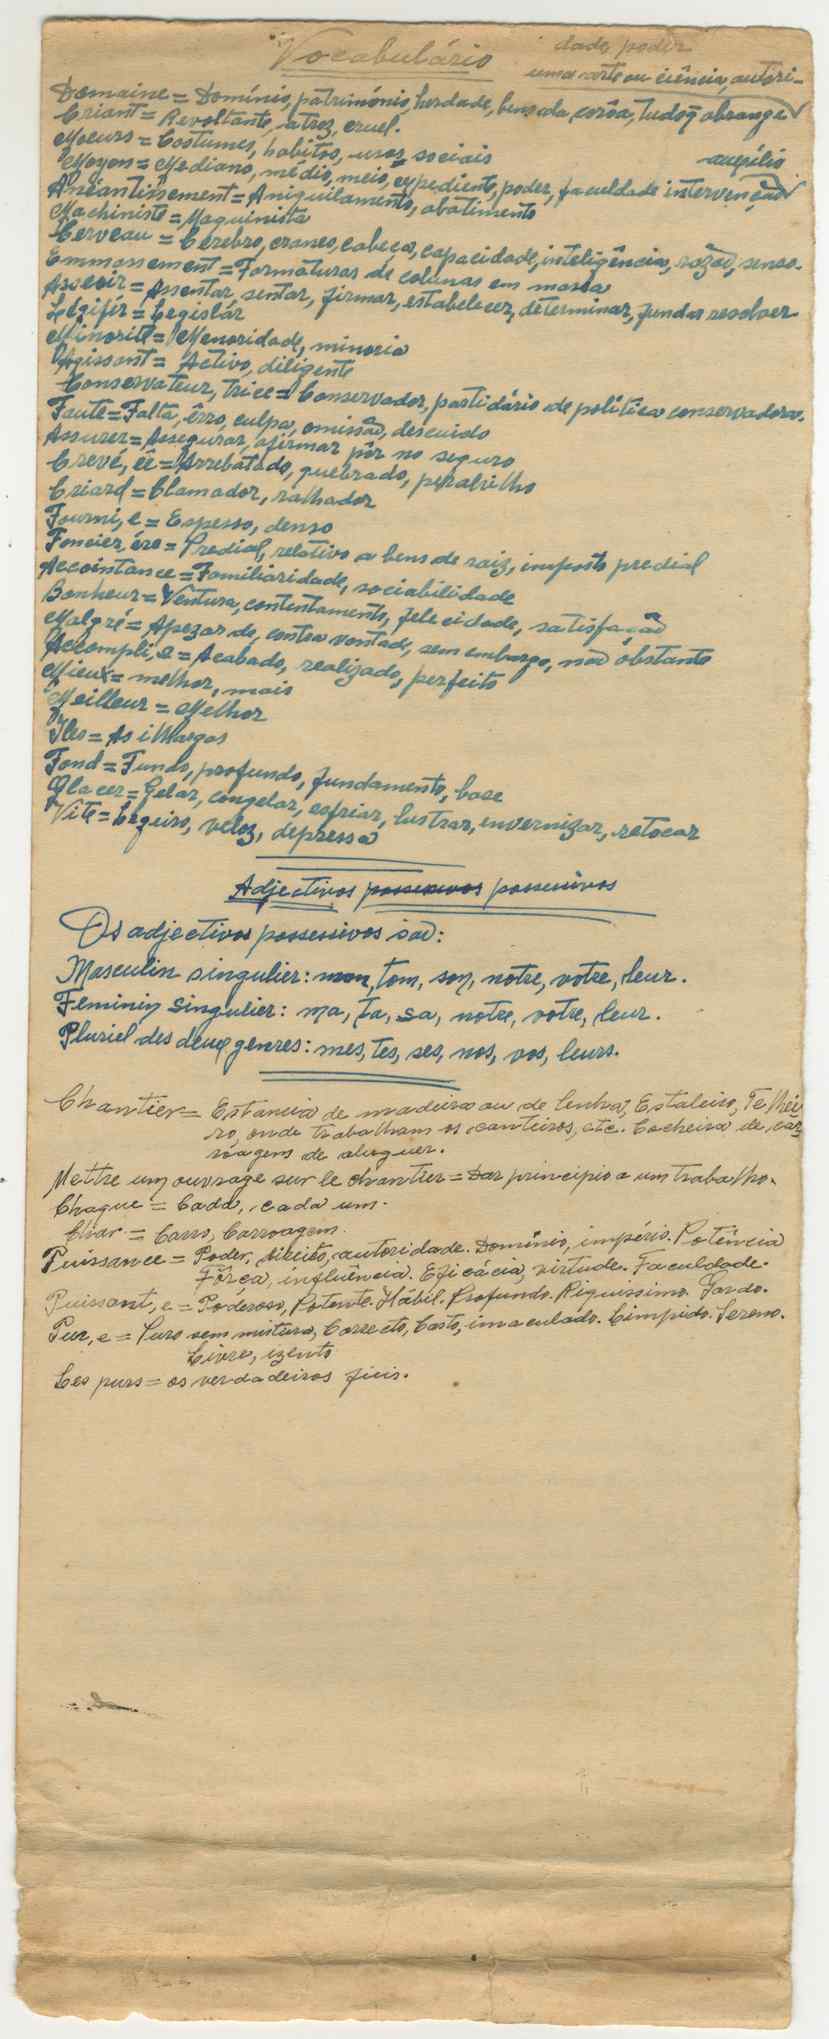 Vocabulário
dade, poder
uma arte ou ciência, autori-
Domaine = Domínio, património, herdade, bens da corôa, tudo q̃ abrange
Criant = Revoltante, atroz, cruel.
Moeurs = Costumes, habitos, usos sociais
auxílio
Moyen = Mediano, médio, meio, expediente, poder, faculdade intervenção
Anéantissement = Aniquilamento, abatimento
Machiniste = Maquinista
Cerveau = Cerebro, craneo, cabeça, capacidade, inteligência, razão, senso.
Emmassement = Formaturas de colunas em massa
Asseoir = Assentar, sentar, firmar, estabelecer, determinar, fundar resolver
Légifér = Legislár
Minorité = Menoridade, minoria
Agissant = Activo, diligente
Conservateur, trice = Conservador, partidário de política conservadora.
Faute = Falta, êrro, culpa, omissão, descuido
Assurer = Assegurar, afirmar pôr no seguro
Crevé, êe = Arrebatado, quebrado, peralvilho
Criard = Clamador, ralhador
Fourni, e = Espesso, denso
Foncier, ére = Predial, relativo a bens de raiz, imposto predial
Accointance = Familiaridade, sociabilidade
Bonheur = Ventura, contentamento, felecidade, satisfação
Malgré = Apezar de, contra vontade, sem embargo, não obstante
Accompli, e = Acabado, realizado, perfeito
Mieux = melhor, mais
Meilleur = Melhor
Iles = As ilhargas
Fond = Fundo, profundo, fundamento, base
Glacer = Gelar, congelar, esfriar, lustrar, envernizar, retocar
Vite = Ligeiro, veloz, depressa
Adjectivos possessivos possessivos
Os adjectivos possessivos são:
Masculin singulier: mon, tom, son, notre, votre, leur.
Feminin singulier: ma, ta, sa, notre, votre, leur.
Pluriel des deux genres: mes, tes, ses, nos, vos, leurs.
Chantier = Estancia de madeira ou de lenha, Estaleiro, Telhei
ro, onde trabalham os canteiros, etc. Cocheira de car
ruagens de aluguer.
Mettre um ouvrage sur le chantier = Dar principio a um trabalho.
Chaque = Cada, cada um.
Char = Carro, Carroagem.
Puissance = Poder, direito, autoridade. Domínio, império. Potência
Fôrça, influência. Eficácia, virtude. Faculdade.
Puissant, e = Poderoso, Potente. Hábil. Profundo. Riquissimo. Gordo.
Pur, e = Puro sem mistura, Correcto, Casto, imaculado. Limpido. Sereno.
Livre, izento
Les purs = os verdadeiros fieis.